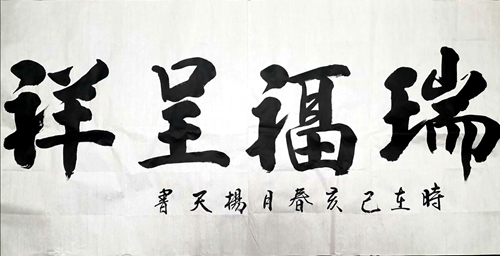 瑞福呈祥
時在己亥春月楊天書